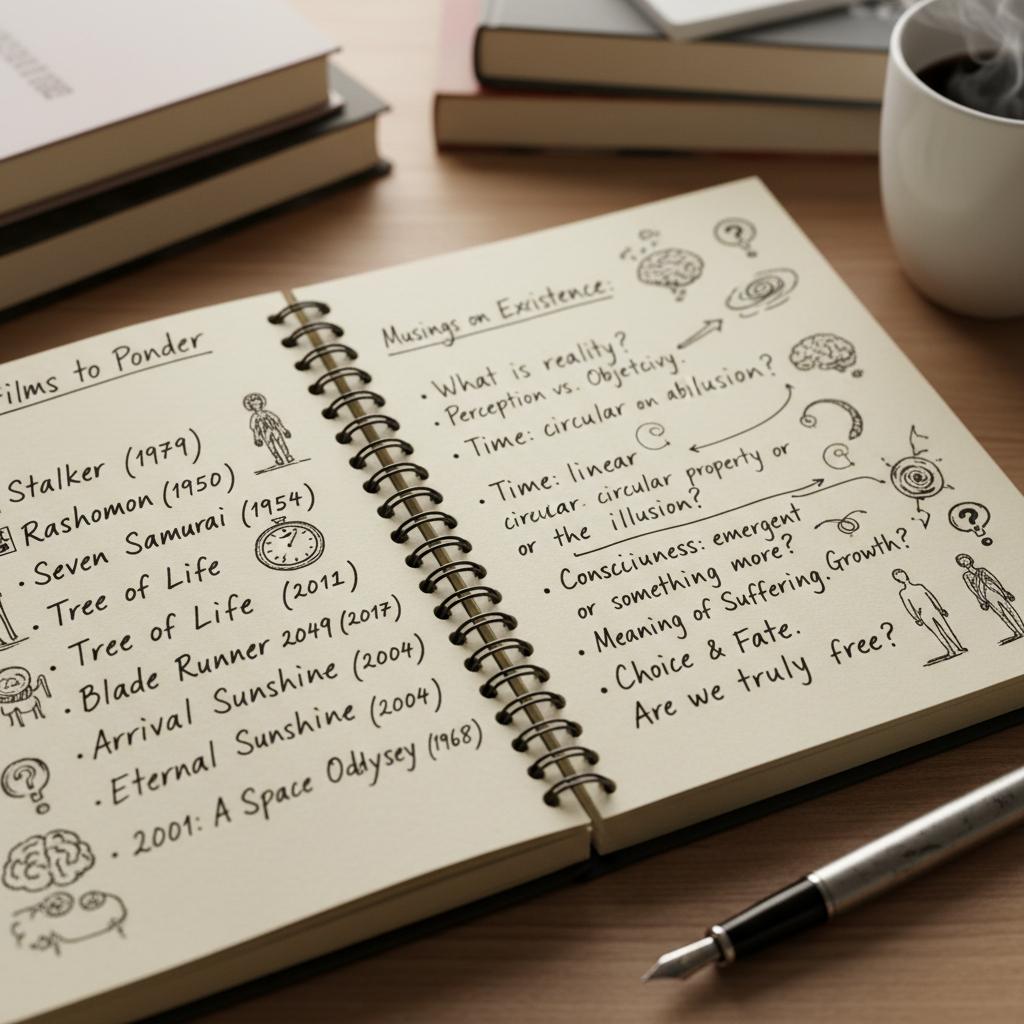 Films to Ponder
Stalker (1979)
Rashomon (1950)
· Seven Samurai (1954)
· Tree of Life
· Tree of Life (2011)
· Blade Runner 2049 (2017)
· Arrival Sunshine (2004)
· Eternal Sunshine (2004)
· 2001: A Space Oddysey (1968)
Musings on Excistence:
· What is reality?
· Perception vs. Objetcivy.
· Time: circular on abllusion?
· Time: linear
circular. circular property or
or the illusion?
· Consciiuness: emergent
or something more?
· Meaning of Suffering. Growth?
· Choice & Fate.
Are we truly free?